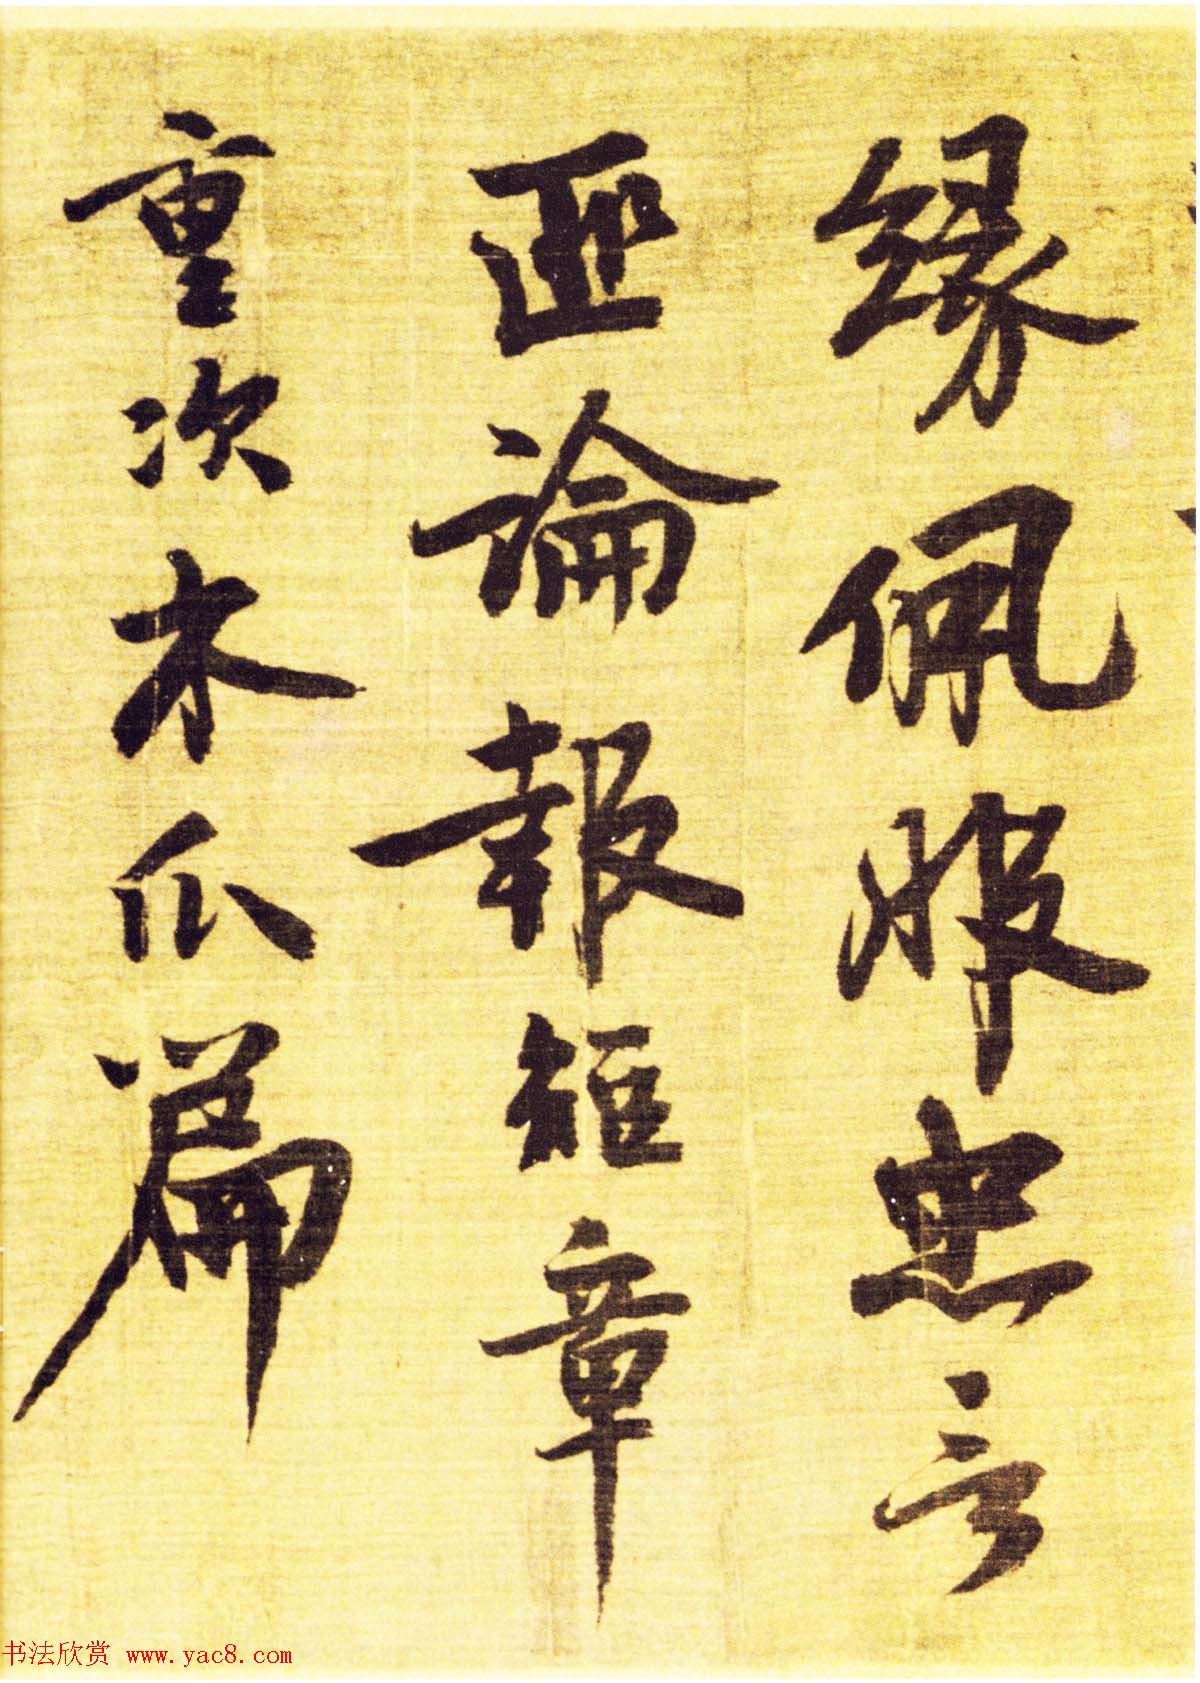 缘佩服忠言
匪論報短章
重次木瓜篇
书法欣赏 www.yac8.com